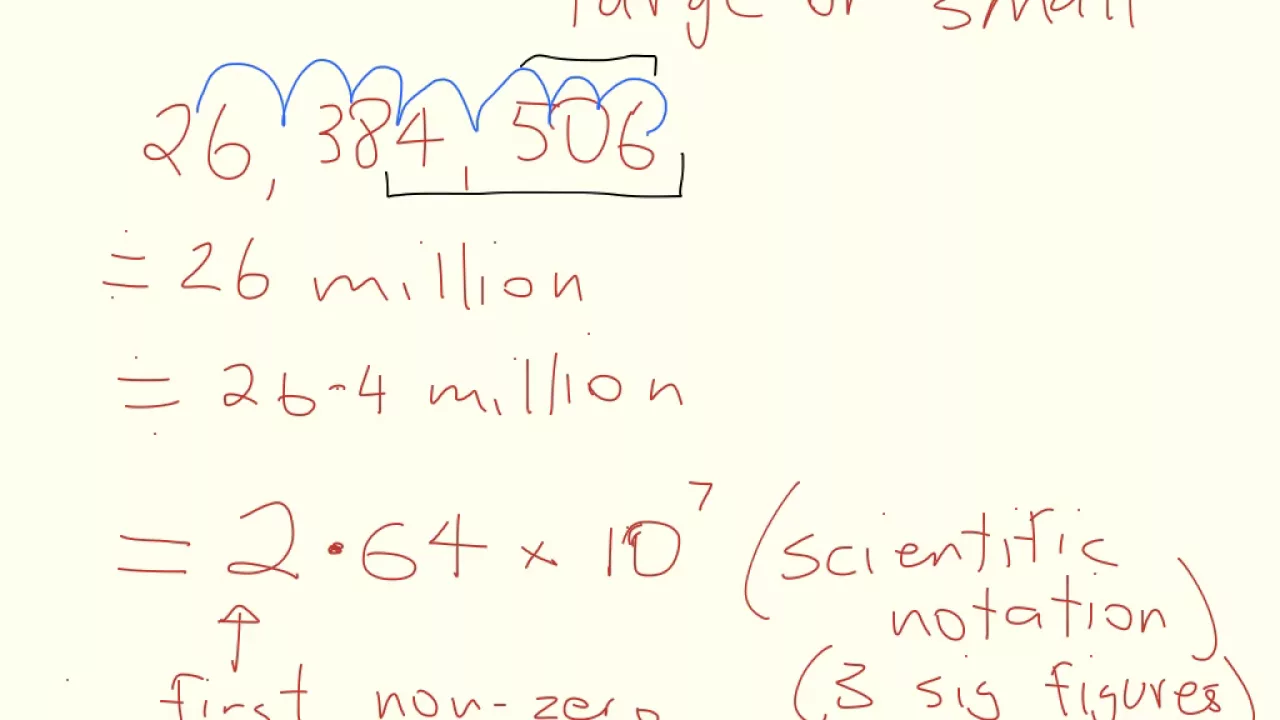 large or small
26,384,506
≒ 26 million
≒ 26.4 million
= 2.64 × 10⁷ (scientific
notation)
(3 sig figures)
first non-zero